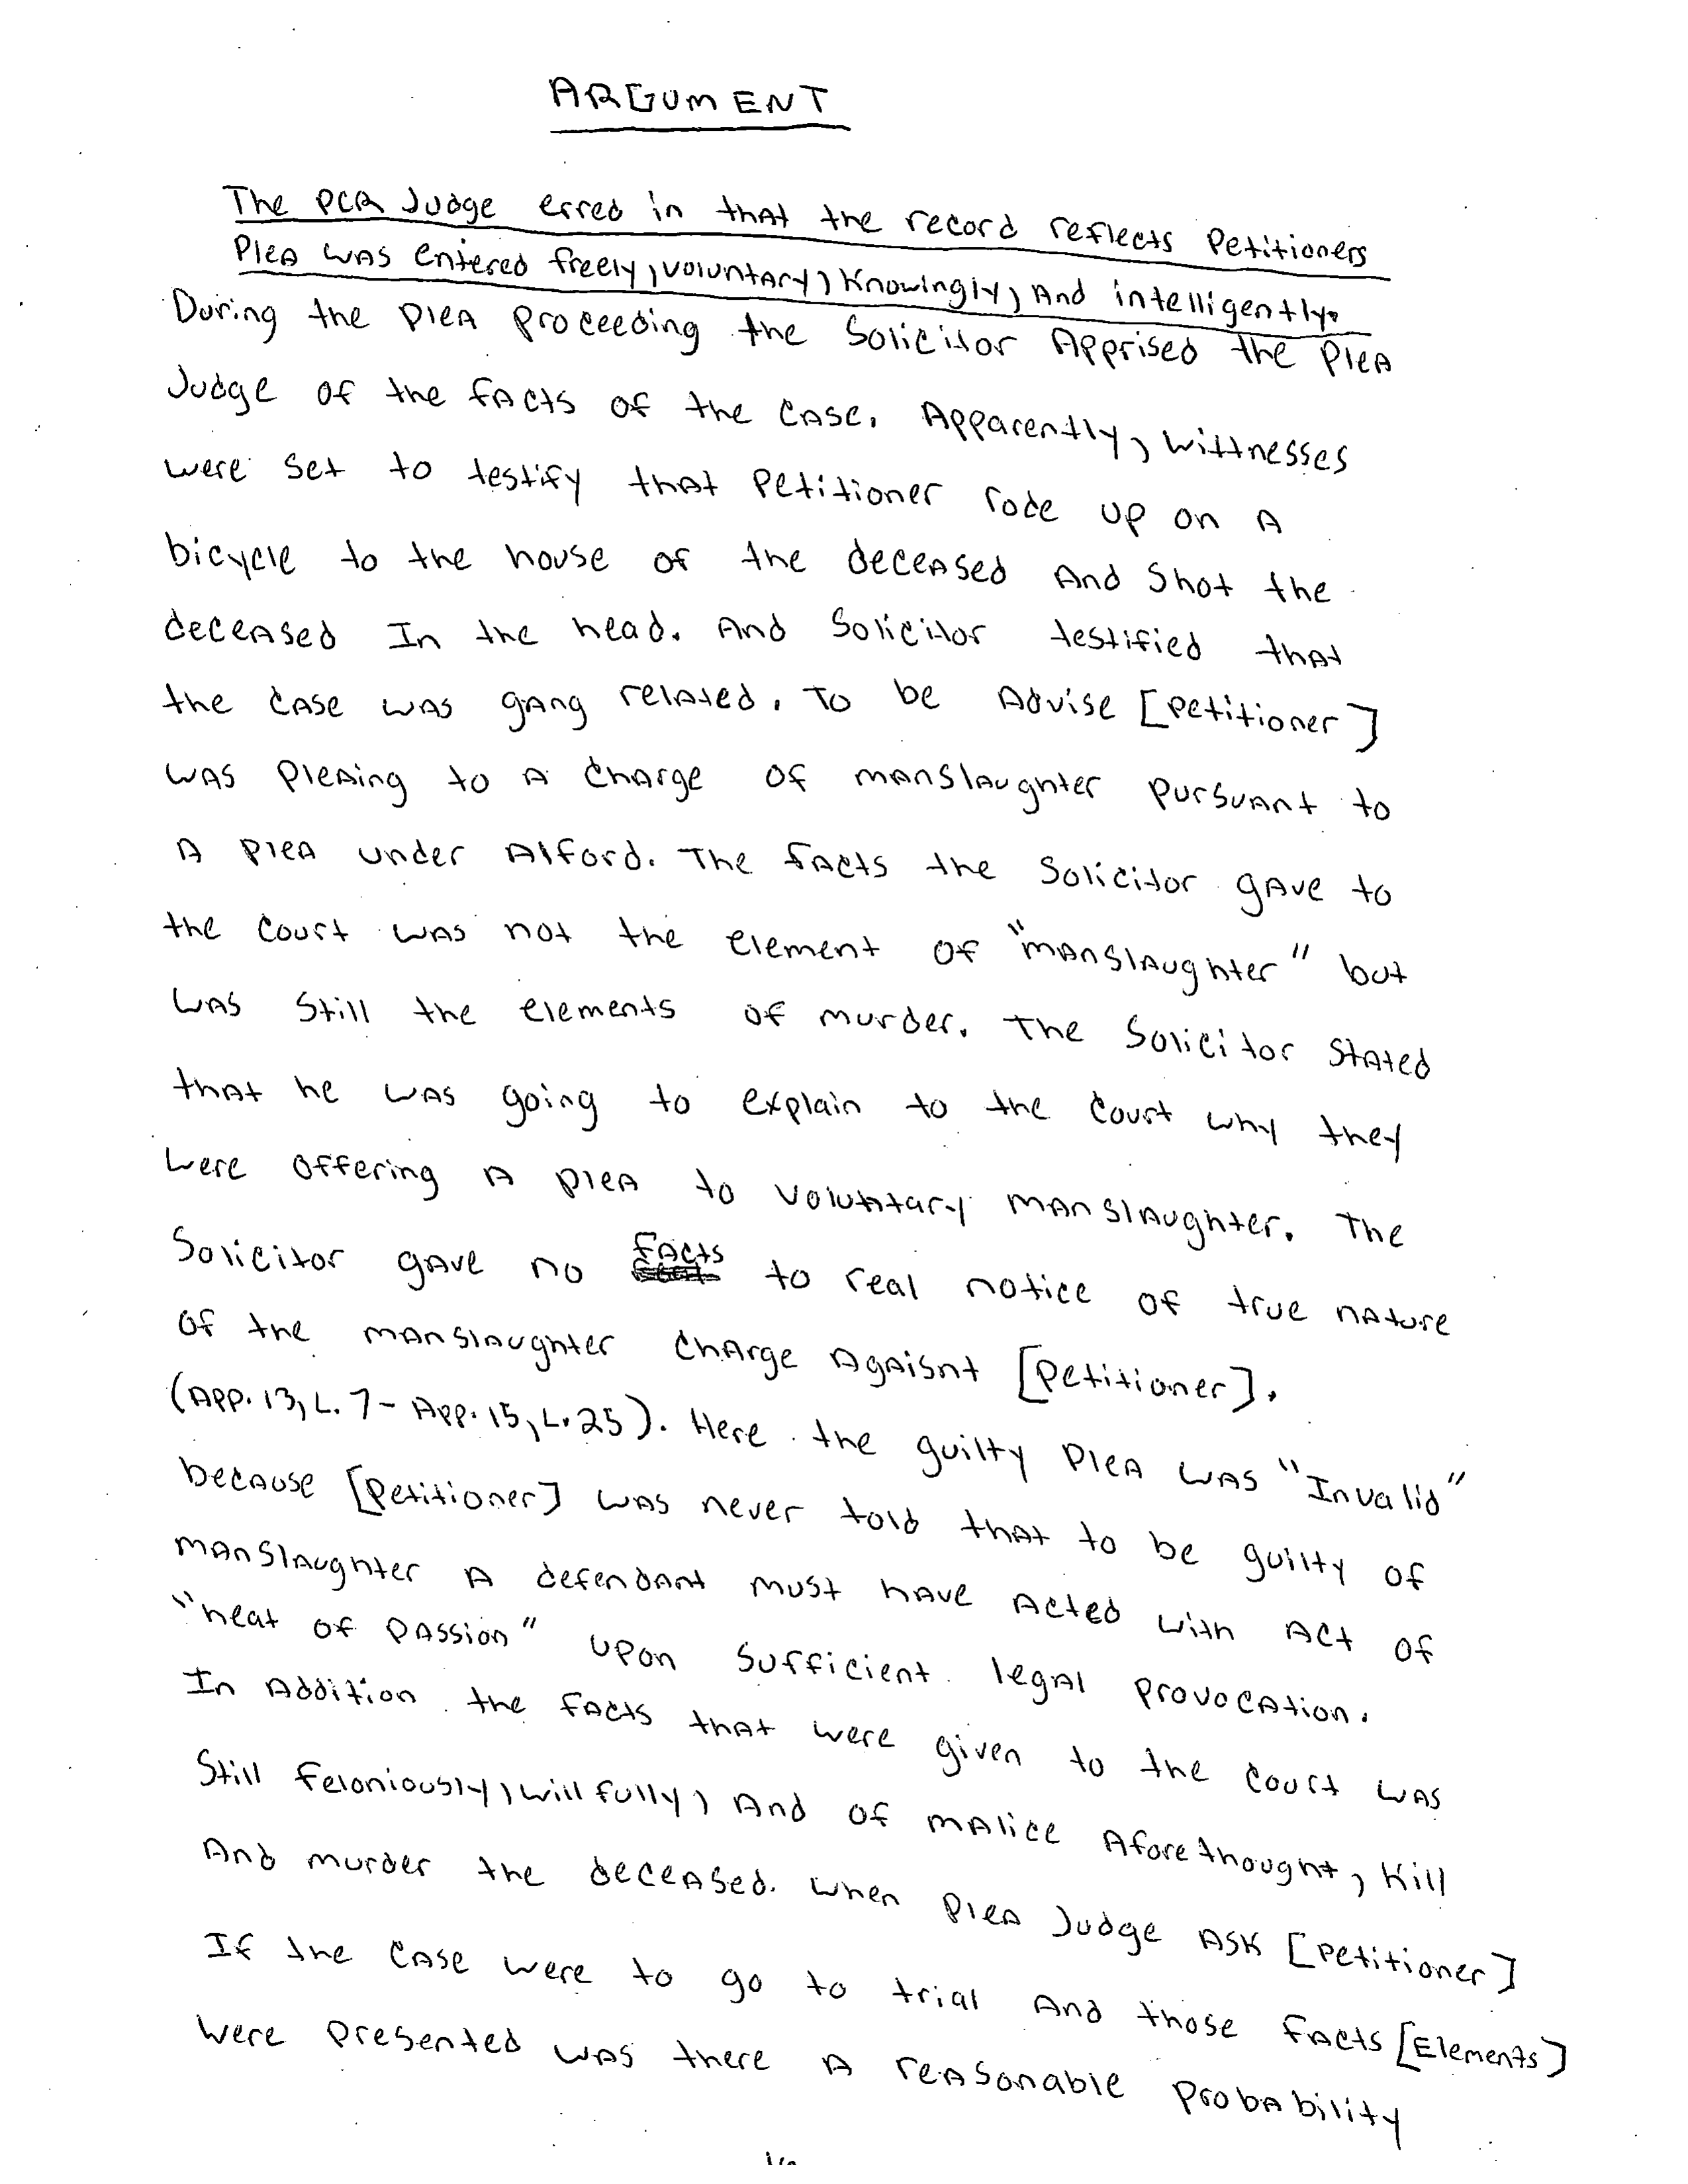 ARGUMENT
The PCR Judge erred in that the record reflects Petitioners
Plea was entered freely, voluntary, knowingly, And intelligently.
During the plea proceeding the Solicitor Apprised the Plea
Judge of the facts of the case. Apparently, wittnesses
were set to testify that Petitioner rode up on A
bicycle to the house of the deceased And Shot the
deceased In the head. And Solicitor testified that
the case was gang related. To be Advise [Petitioner]
was Pleaing to A Charge of manslaughter pursuant to
A plea under Alford. The facts the Solicitor gave to
the Court was not the element of "manslaughter" but
was Still the elements of murder. The Solicitor Stated
that he was going to explain to the Court why they
were offering A plea to voluntary manslaughter. The
Solicitor gave no facts to real notice of true nature
of the manslaughter Charge Agaisnt [Petitioner].
(App. 13, L. 7 - App. 15, L. 25). Here the guilty Plea was "Invalid"
because [Petitioner] was never told that to be guilty of
manslaughter A defendant must have Acted with Act of
"heat of Passion" upon Sufficient legal provocation.
In Addition the facts that were given to the Court was
Still feloniously, willfully, And of malice Aforethought, Kill
And murder the deceased. When Plea Judge ASK [Petitioner]
If the case were to go to trial And those facts [Elements]
were presented was there A reasonable Probability